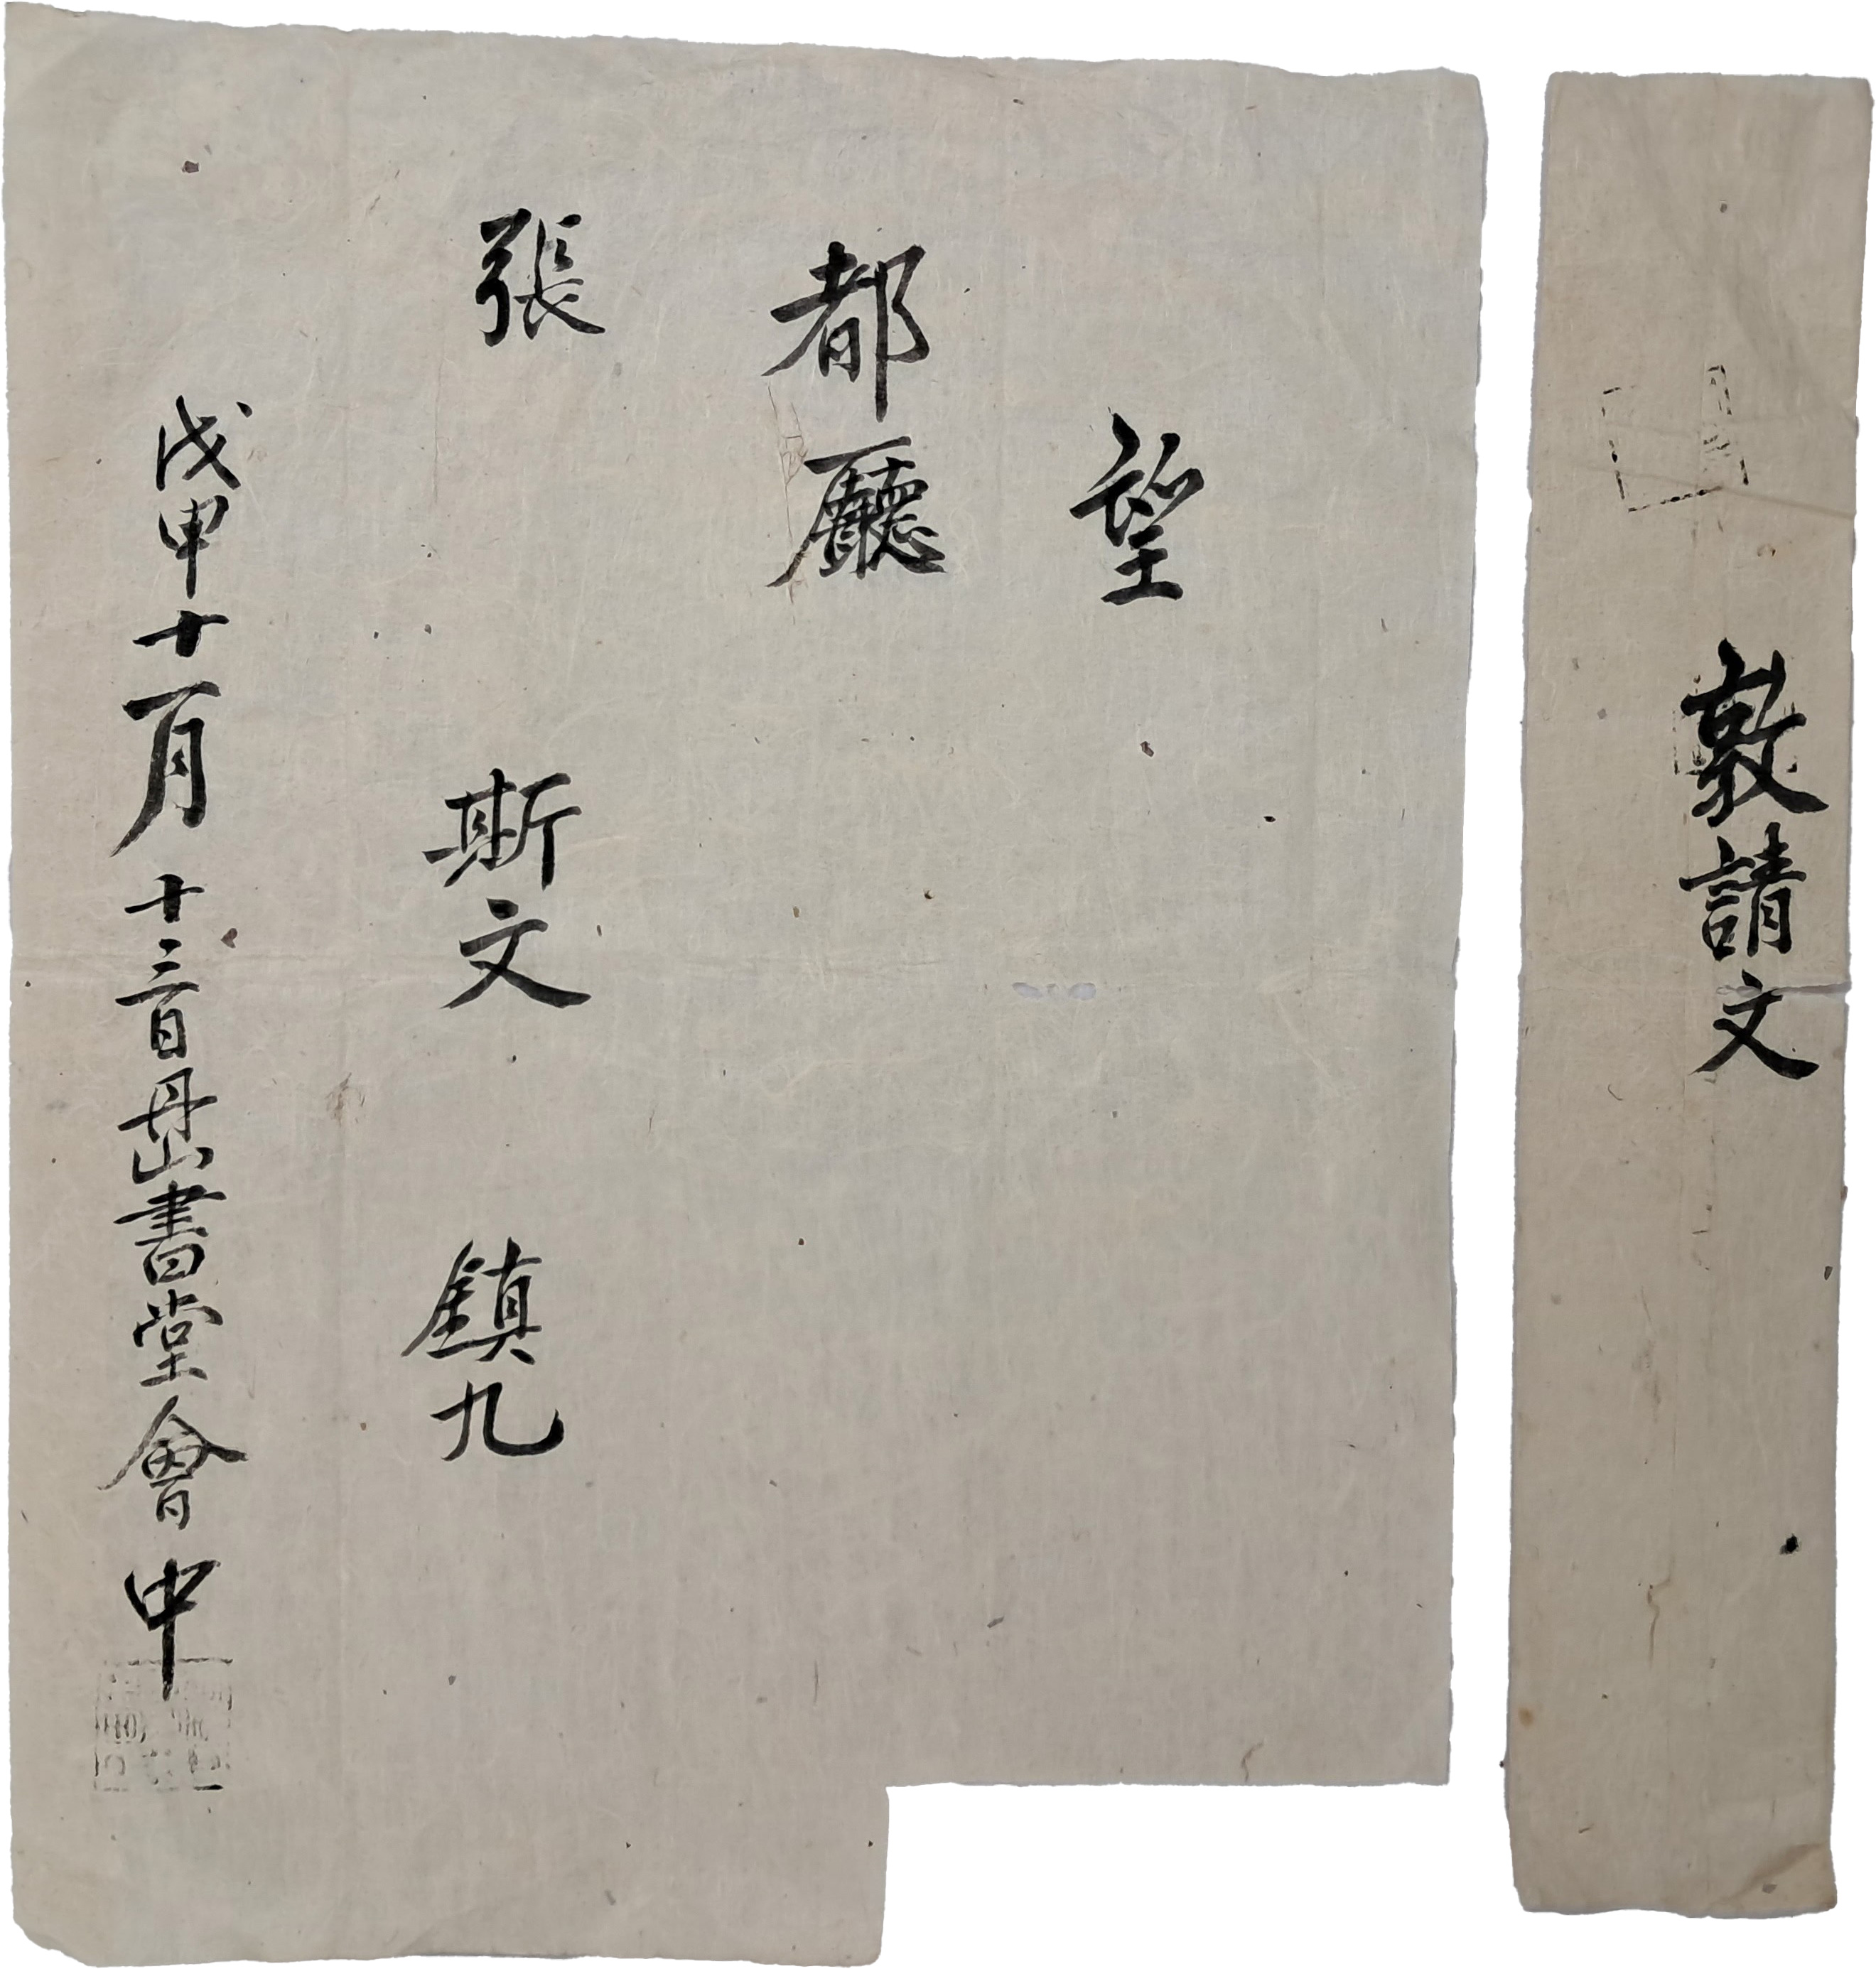 敦請文
望
都廳
張 斯文 鎮九
戊申十一月十三日丹山書堂會中